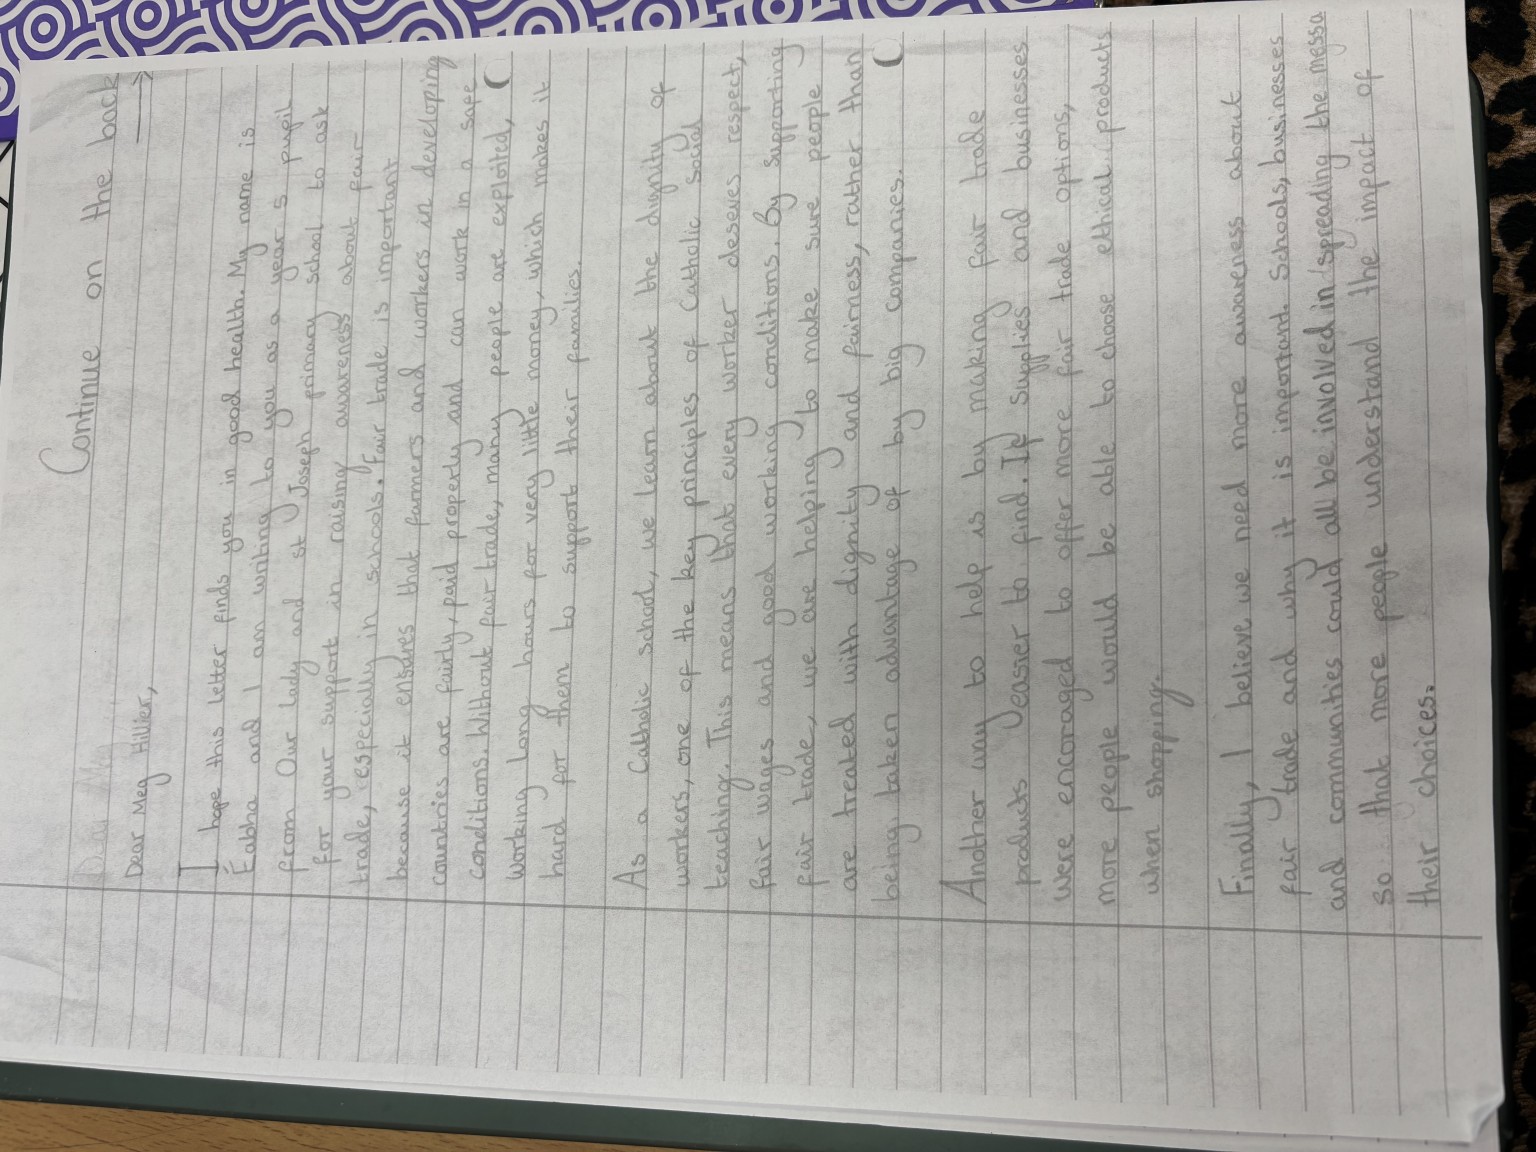 Continue on the back
Dear Meg Hillier,
I hope this letter finds you in good health. My name is
and I am writing to you as a year 5 pupil
from Our lady and st Joseph primary school to ask
for your support in raising awareness about fair
trade, especially in schools. Fair trade is important
because it ensures that farmers and workers in developing
countries are fairly, paid properly and can work in a safe
conditions. Without fair trade, many people are exploited,
working long hours for very little money, which makes it
hard for them to support their families.
As a Catholic school, we learn about the dignity of
workers, one of the key principles of Catholic social
teaching. This means that every worker deseves respect,
fair wages and good working conditions. By supporting
fair trade, we are helping to make sure people
are treated with dignity and fairness, rather than
being taken advantage of by big companies.
Another way to help is by making fair trade
products easier to find. If supplies and businesses
were encoraged to offer more fair trade options,
more people would be able to choose ethical products
when shopping.
Finally, I believe we need more awareness about
fair trade and why it is important. Schools, businesses
and communities could all be involved in spreading the messa
so that more people understand the impact of
their choices.